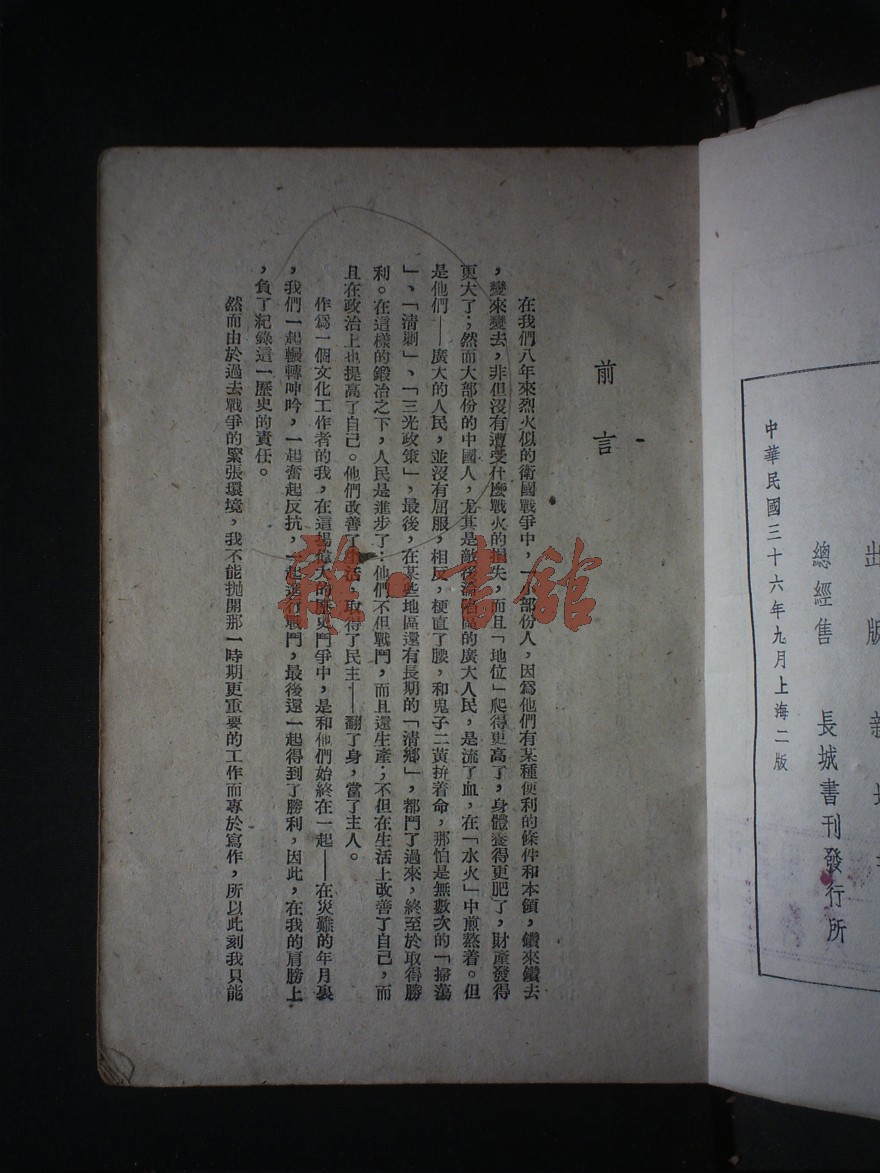 中華民國三十六年九月上海二版
總經售 長城書刊發行所
出版新
前言
在我們八年來烈火似的衛國戰爭中，一小部份人，因爲他們有某種便利的條件和本領，鑽來鑽去
，變來變去，非但沒有遭受什麼戰火的損失，而且「地位」爬得更高了，身體養得更肥了，財產發得
更大了；然而大部份的中國人，尤其是敵後淪陷區的廣大人民，是流了血，在「水火」中煎熬着。但
是他們——廣大的人民，並沒有屈服，相反，梗直了腰，和鬼子二黃拚着命，那怕是無數次的「掃蕩
」、「清剿」、「三光政策」，最後，在某些地區還有長期的「清鄉」，都鬥了過來，終至於取得勝
利。在這樣的鍛冶之下，人民是進步了：他們不但戰鬥，而且還生產；不但在生活上改善了自己，而
且在政治上也提高了自己。他們改善了生活，取得了民主——翻了身，當了主人。
作爲一個文化工作者的我，在這場偉大的歷史鬥爭中，是和他們始終在一起——在災難的年月裏
，我們一起輾轉呻吟，一起奮起反抗，一起進行戰鬥，最後還一起得到了勝利，因此，在我的肩膀上
，負了紀錄這一歷史的責任。
然而由於過去戰爭的緊張環境，我不能拋開那一時期更重要的工作而專於寫作，所以此刻我只能
雜·書館